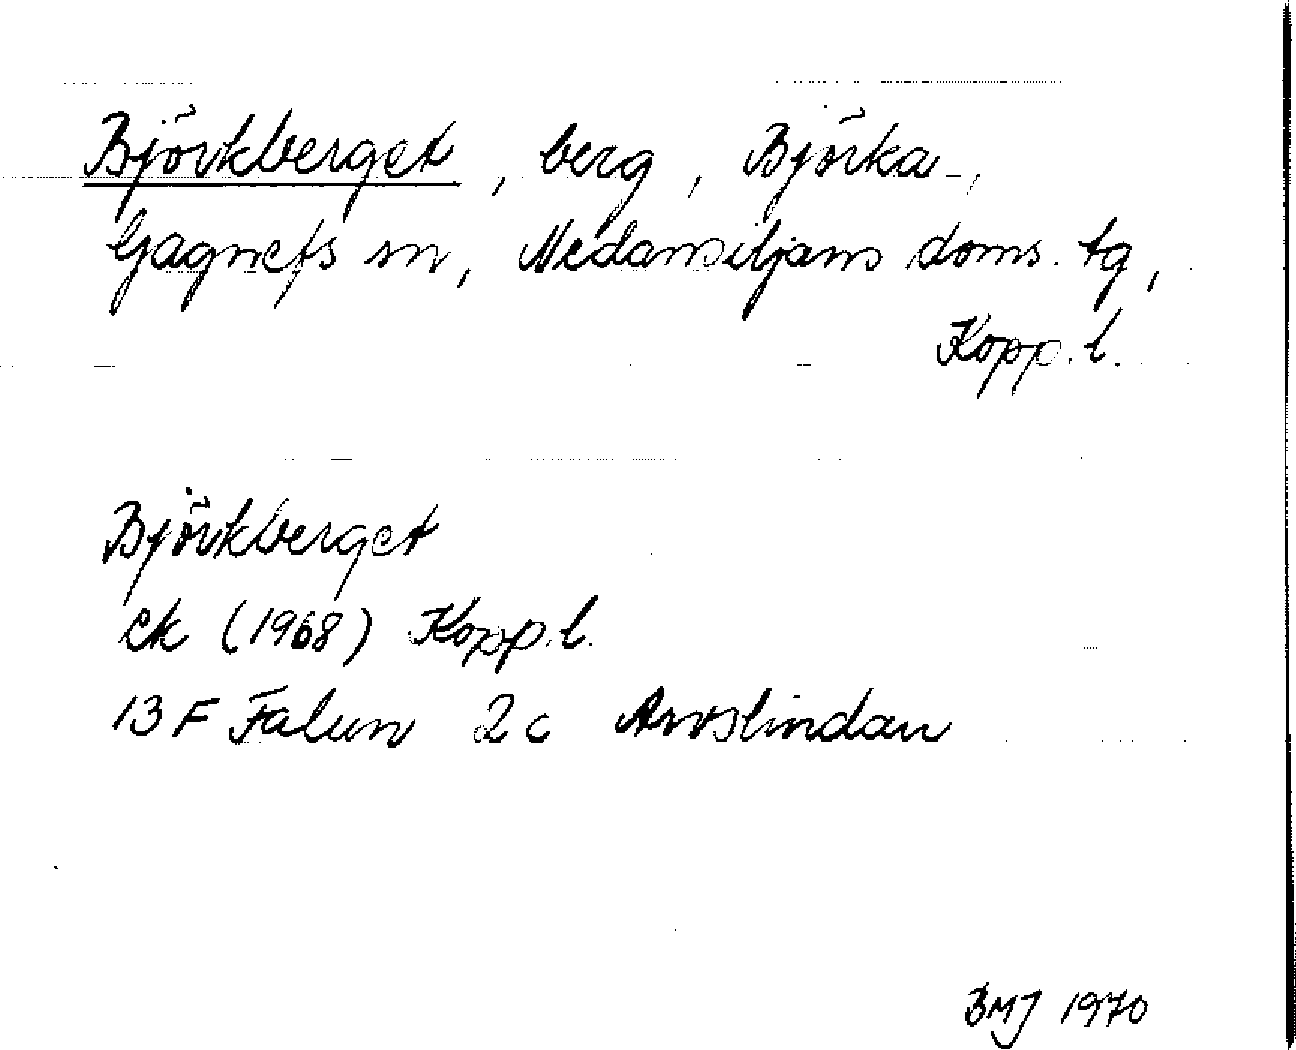 Björkberget, berg, Björka-,
Gagnefs sn, Nedansiljans doms. tg,
Kopp. l.
Björkberget
ek (1968) Kopp. l.
13 F Falun 2c Arvslindan
BMJ 1970